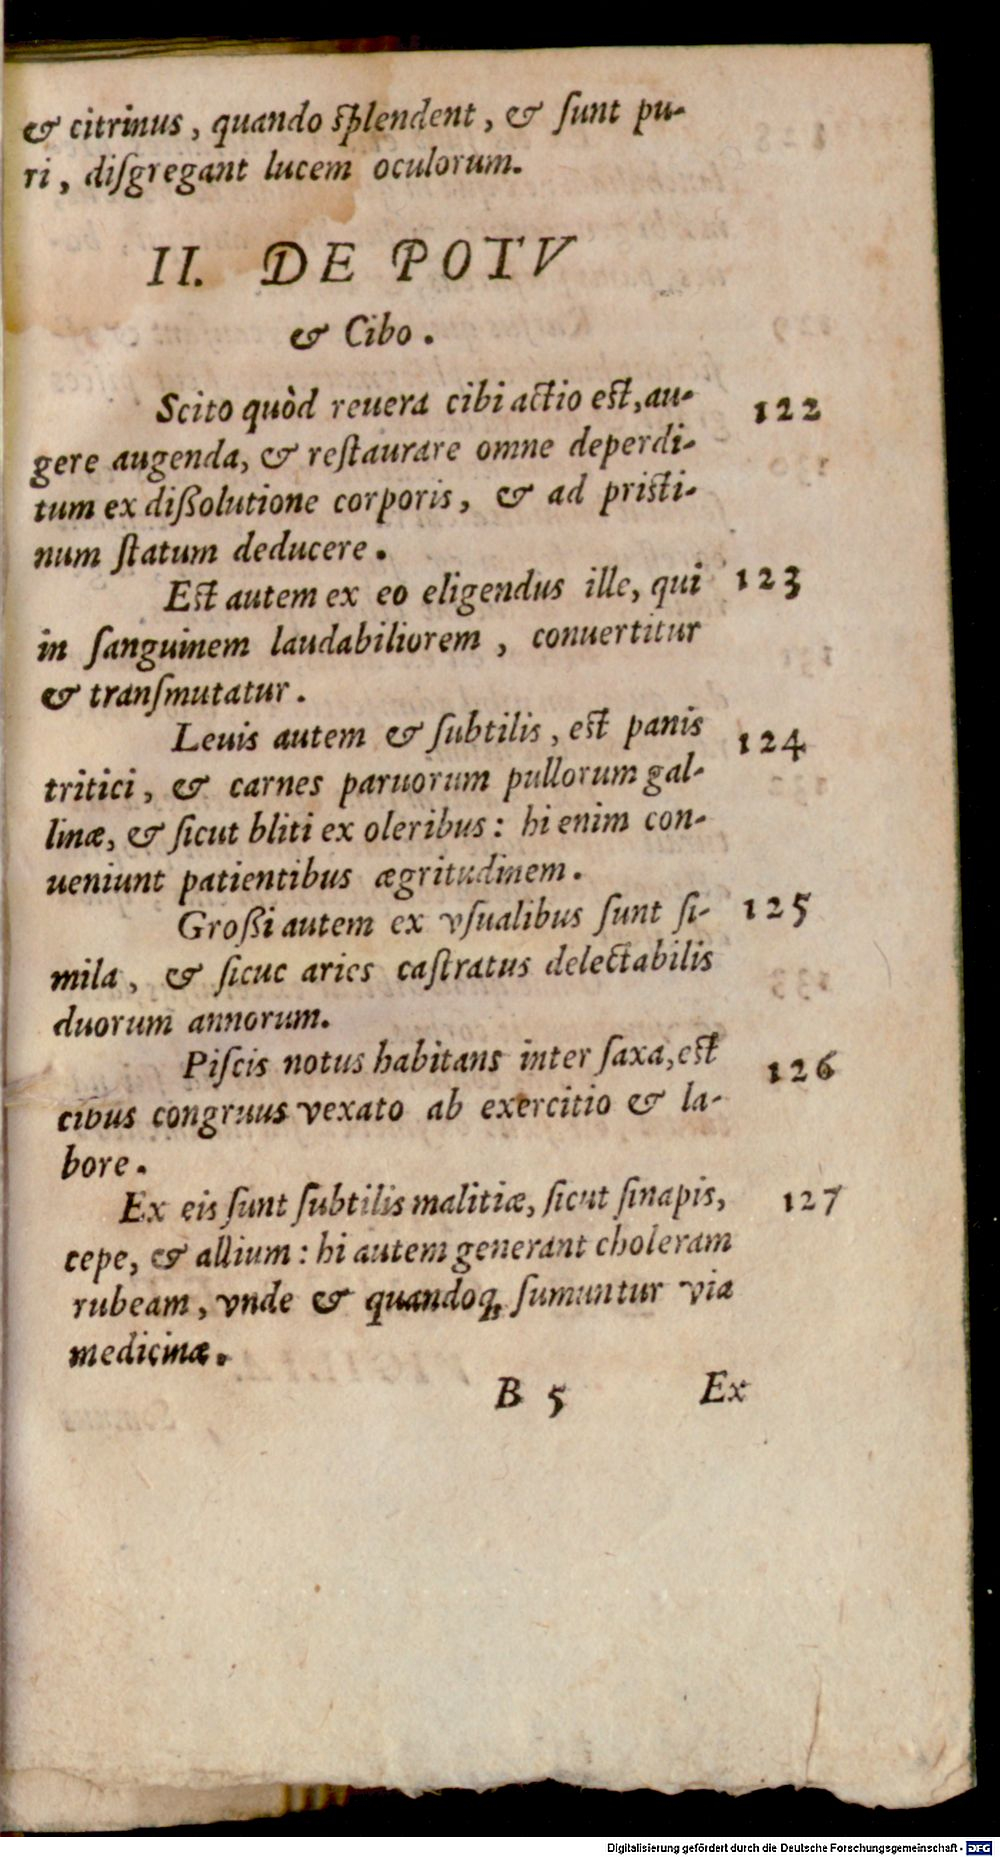 & citrinus, quando splendent, & ſunt pu-
ri, diſgregant lucem oculorum.
II. DE POTV
& Cibo.
Scito quòd reuera cibi actio est, au- 122
gere augenda, & reſtaurare omne deperdi-
tum ex dißolutione corporis, & ad pristi-
num ſtatum deducere.
Est autem ex eo eligendus ille, qui 123
in ſanguinem laudabiliorem, conuertitur
& tranſmutatur.
Leuis autem & ſubtilis, est panis 124
tritici, & carnes paruorum pullorum gal-
linæ, & ſicut bliti ex oleribus: hi enim con-
ueniunt patientibus ægritudinem.
Großi autem ex vſualibus ſunt ſi- 125
mila, & ſicuc aries caſtratus delectabilis
duorum annorum.
Piſcis notus habitans inter ſaxa, est 126
cibus congruus vexato ab exercitio & la-
bore.
Ex eis ſunt ſubtilis malitiæ, ſicut ſinapis, 127
cepe, & allium: hi autem generant choleram
rubeam, vnde & quandoq; ſumuntur via
medicinæ.
B 5 Ex
Digitalisierung gefördert durch die Deutsche Forschungsgemeinschaft - DFG